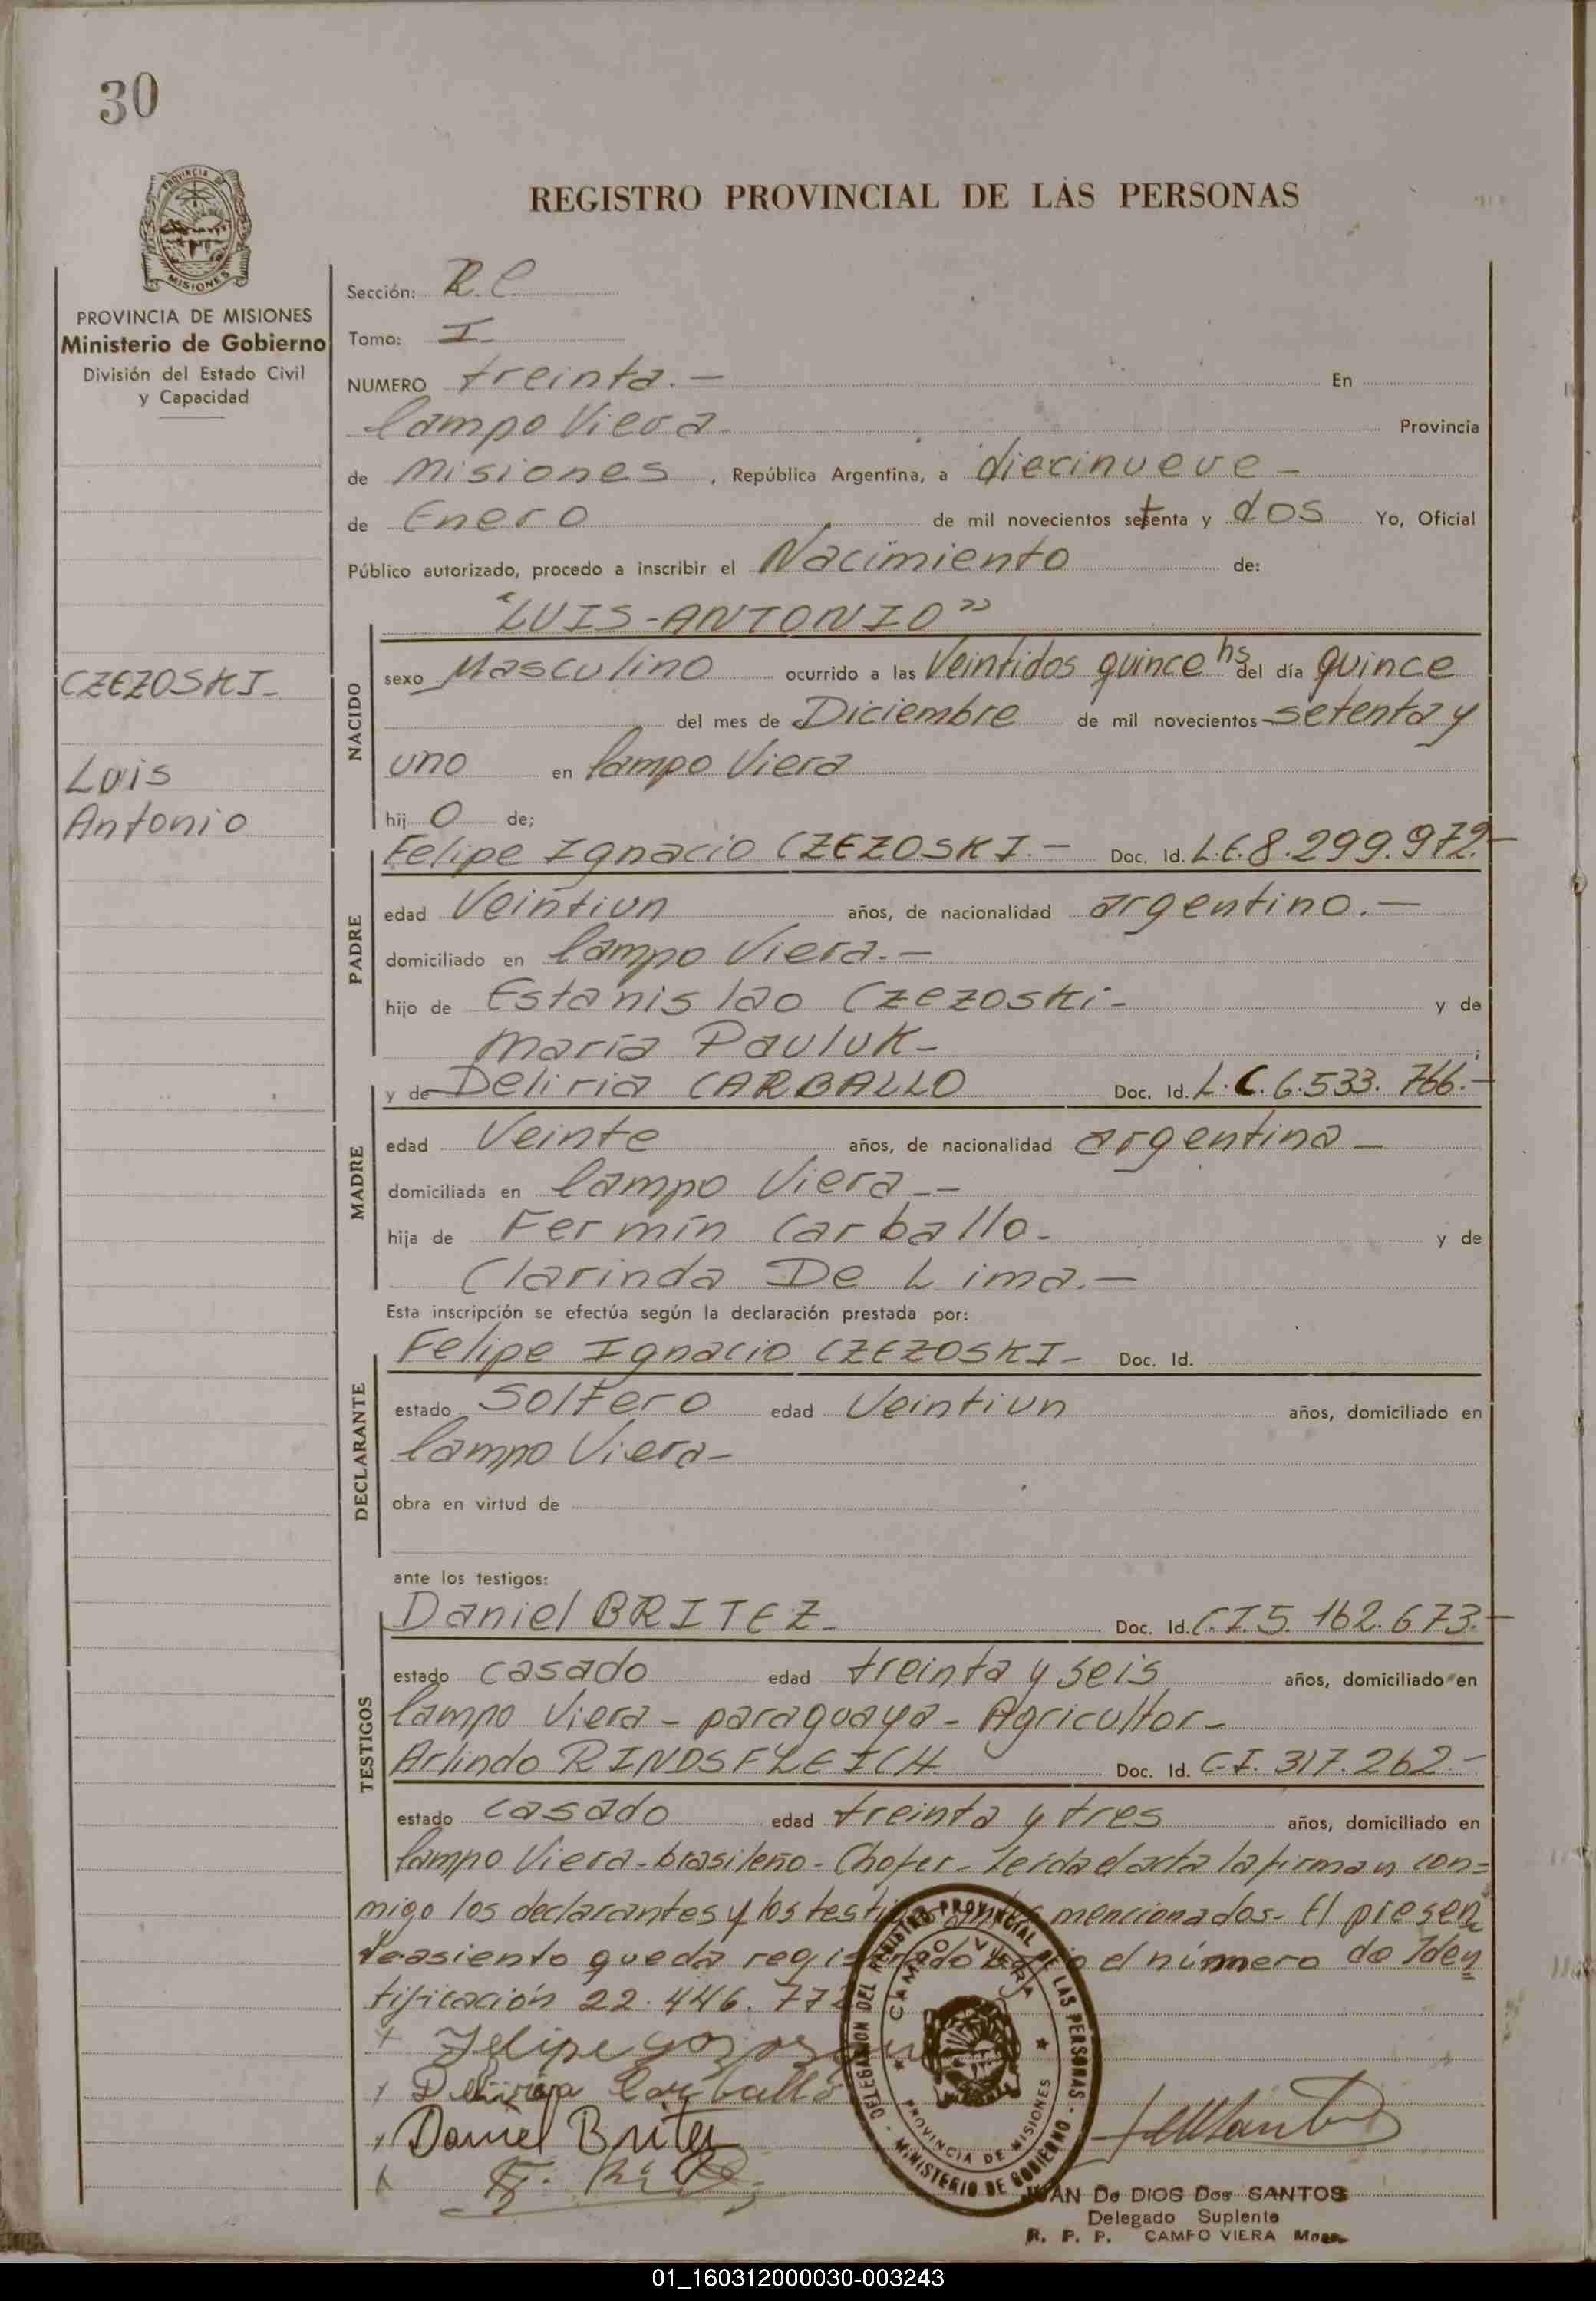 30
PROVINCIA DE
MISIONES
REGISTRO PROVINCIAL DE LAS PERSONAS
PROVINCIA DE MISIONES
Ministerio de Gobierno
División del Estado Civil
y Capacidad
CZEZOSKI-
Luis
Antonio
Sección: R.C.
Tomo: I-
NUMERO treinta.- En
Campo Viera- Provincia
de Misiones, República Argentina, a diecinueve-
de Enero de mil novecientos setenta y dos Yo, Oficial
Público autorizado, procedo a inscribir el Nacimiento de:
"LUIS-ANTONIO"
NACIDO
sexo Masculino ocurrido a las Veintidos quince hs del día quince
del mes de Diciembre de mil novecientos setenta y
uno en Campo Viera
hijo de;
PADRE
Felipe Ignacio CZEZOSKI.- Doc. Id. L.E.8.299.972.-
edad Veintiun años, de nacionalidad argentino.-
domiciliado en Campo Viera.-
hijo de Estanislao Czezoski- y de
María Pauluk- ;
MADRE
y de Deliria CARBALLO Doc. Id. L.C.6.533.766.-
edad Veinte años, de nacionalidad argentina-
domiciliada en Campo Viera.-
hija de Fermín Carballo- y de
Clarinda De Lima.-
Esta inscripción se efectúa según la declaración prestada por:
DECLARANTE
Felipe Ignacio CZEZOSKI- Doc. Id.
estado Soltero edad Veintiun años, domiciliado en
Campo Viera-
obra en virtud de
ante los testigos:
TESTIGOS
Daniel BRITEZ- Doc. Id. C.I.5.162.673.-
estado casado edad treinta y seis años, domiciliado en
Campo Viera- paraguaya- Agricultor-
Arlindo RINDSFLEICH Doc. Id. C.I. 317.262.-
estado casado edad treinta y tres años, domiciliado en
Campo Viera-brasileño-Chofer-Leída el acta la firman con=
migo los declarantes y los testigos antes mencionados- El presen
te asiento queda registrado bajo el número de Iden
tificación 22.446.77
Felipe
Deliria Carballo
Daniel Britez
DELEGACION DEL REGISTRO PROVINCIAL DE LAS PERSONAS - MINISTERIO DE GOBIERNO -
CAMPO VIERA
PROVINCIA DE MISIONES
JUAN De DIOS Dos SANTOS
Delegado Suplente
R. P. P. CAMPO VIERA Mnes.
01_160312000030-003243